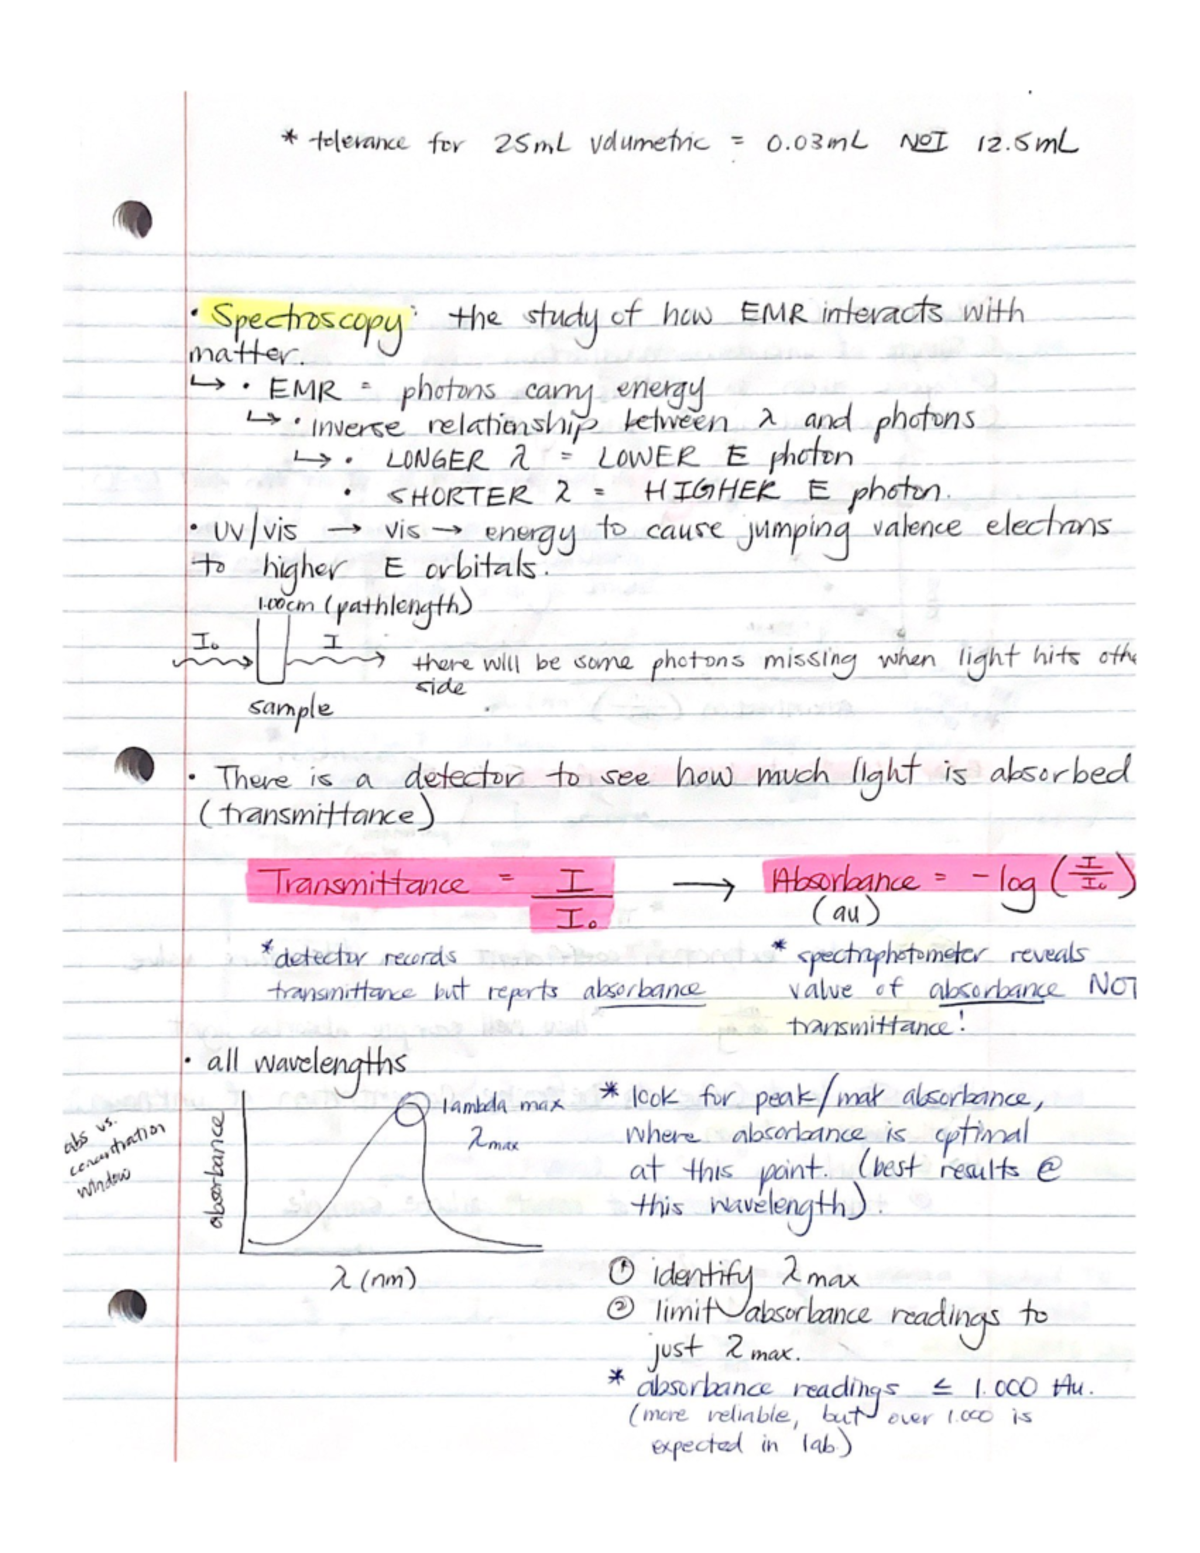 * tolerance for 25mL volumetric = 0.03mL NOT 12.5mL
• Spectroscopy: the study of how EMR interacts with
matter.
↳ • EMR = photons carry energy
↳ • inverse relationship between λ and photons
↳ • LONGER λ = LOWER E photon
• SHORTER λ = HIGHER E photon.
• UV/vis → vis → energy to cause jumping valence electrons
to higher E orbitals.
1.00cm (pathlength)
I₀ I
there will be some photons missing when light hits othe
side
sample
• There is a detector to see how much light is absorbed
(transmittance)
Transmittance = I/I₀ → Absorbance = -log (I/I₀)
(au)
*detector records
transmittance but reports absorbance
* spectrophotometer reveals
value of absorbance NOT
transmittance!
• all wavelengths
abs vs.
concentration
window
absorbance
lambda max
λmax
λ (nm)
* look for peak/max absorbance,
where absorbance is optimal
at this point. (best results @
this wavelength).
① identify λmax
② limit absorbance readings to
just λmax.
* absorbance readings ≤ 1.000 Au.
(more reliable, but over 1.000 is
expected in lab)